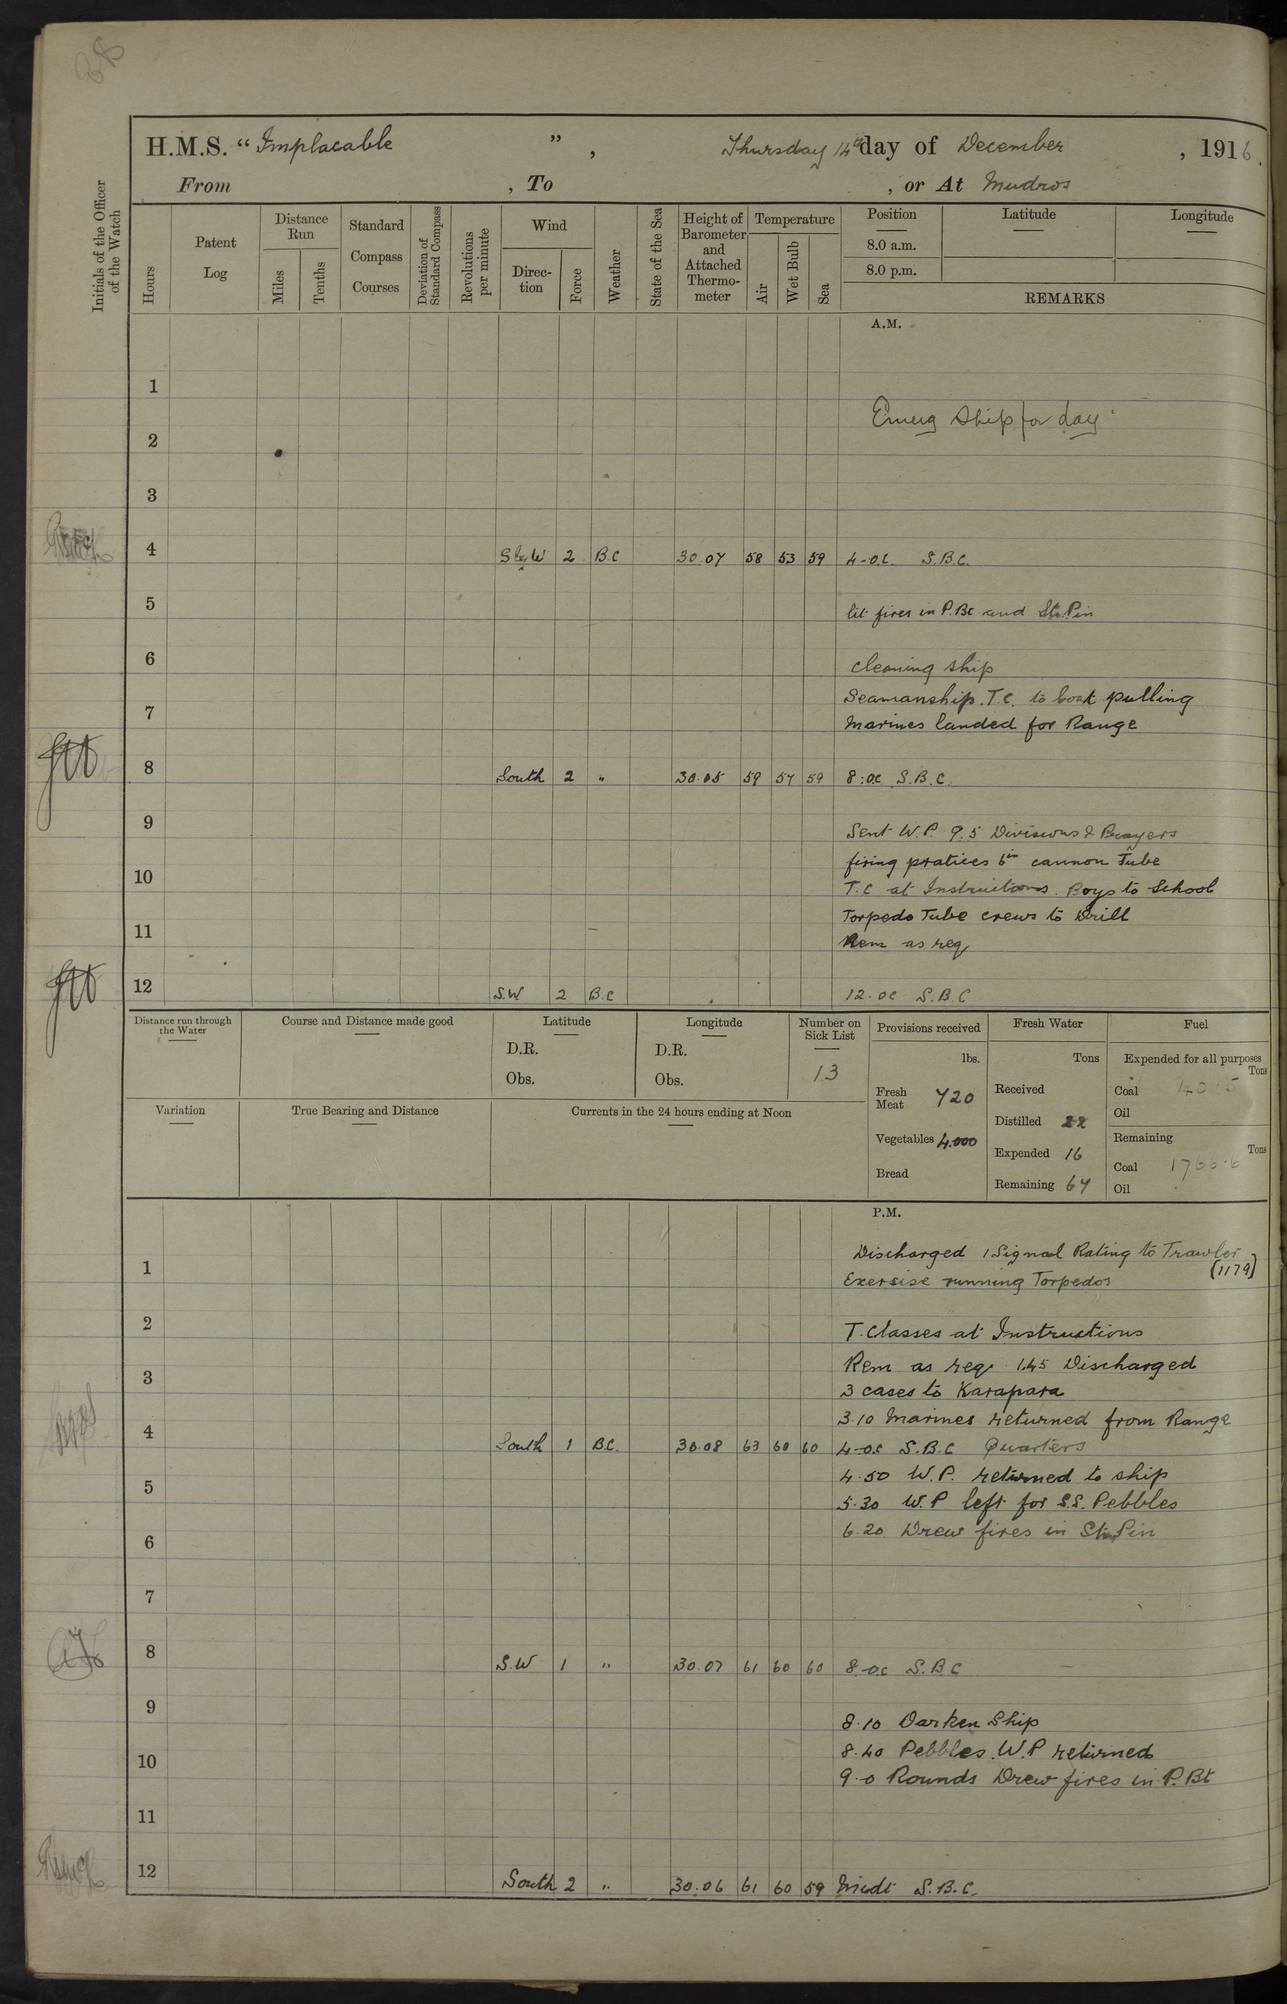 H.M.S. “Implacable”, Thursday 14th day of December, 1916.
From , To , or At Mudros
Initials of the Officer of the Watch
Hours
Patent Log
Distance Run
Miles
Tenths
Standard Compass Courses
Deviation of Standard Compass
Revolutions per minute
Wind
Direc-tion
Force
Weather
State of the Sea
Height of Barometer and Attached Thermo-meter
Temperature
Air
Wet Bulb
Sea
Position
8.0 a.m.
8.0 p.m.
Latitude
Longitude
REMARKS
A.M.
1
Emerg Ship for day
2
3
4 SbyW 2 B.C 30.07 58 53 59 4-0.c. S.B.C.
5
lit fires in P.Bt and St. Pin
6
Cleaning ship
Seamanship. T.C. to boat pulling
7
Marines landed for Range
8 South 2 " 30.05 59 57 59 8:oc S.B.C.
9
Sent W.P. 9.5 Divisions & Prayers
firing pratices 6in cannon Tube
10
T.C at Instructions. Boys to School
Torpedo Tube crews to Drill
11
Rem as req
12 S.W 2 B.C 12.oc S.B.C
Distance run through the Water
Course and Distance made good
Latitude
D.R.
Obs.
Longitude
D.R.
Obs.
Number on Sick List
13
Provisions received
lbs.
Fresh Meat 720
Vegetables 4.000
Bread
Fresh Water
Tons
Received
Distilled 22
Expended 16
Remaining 67
Fuel
Expended for all purposes
Tons
Coal 40.5
Oil
Remaining
Tons
Coal 1766.6
Oil
Variation
True Bearing and Distance
Currents in the 24 hours ending at Noon
P.M.
Discharged 1 Signal Rating to Trawler
1 (1179)
Exersise running Torpedos
2
T. Classes at Instructions
Rem as req. 1.45 Discharged
3
3 cases to Karapara
3.10 Marines returned from Range
4 South 1 B.C. 30.08 63 60 60 4-o.c S.B.C Quarters
4.50 W.P. returned to ship
5
5.30 W.P left for S.S. Pebbles
6.20 Drew fires in St. Pin
6
7
8 S.W 1 " 30.07 61 60 60 8-o.c S.B.C
9
8.10 Darken Ship
8.40 Pebbles. W.P returned
10
9.0 Rounds Drew fires in P. Bt
11
12 South 2 " 30.06 61 60 59 Midt S.B.C.